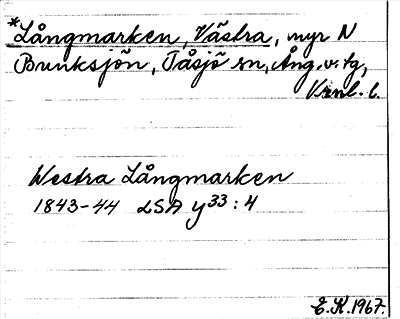 *Långmarken, Västra, myr N
Brunksjön, Tåsjö sn, Ång. v. tg,
Vrml. l.
Westra Långmarken
1843-44 LSA y³³:4
E.K. 1967.